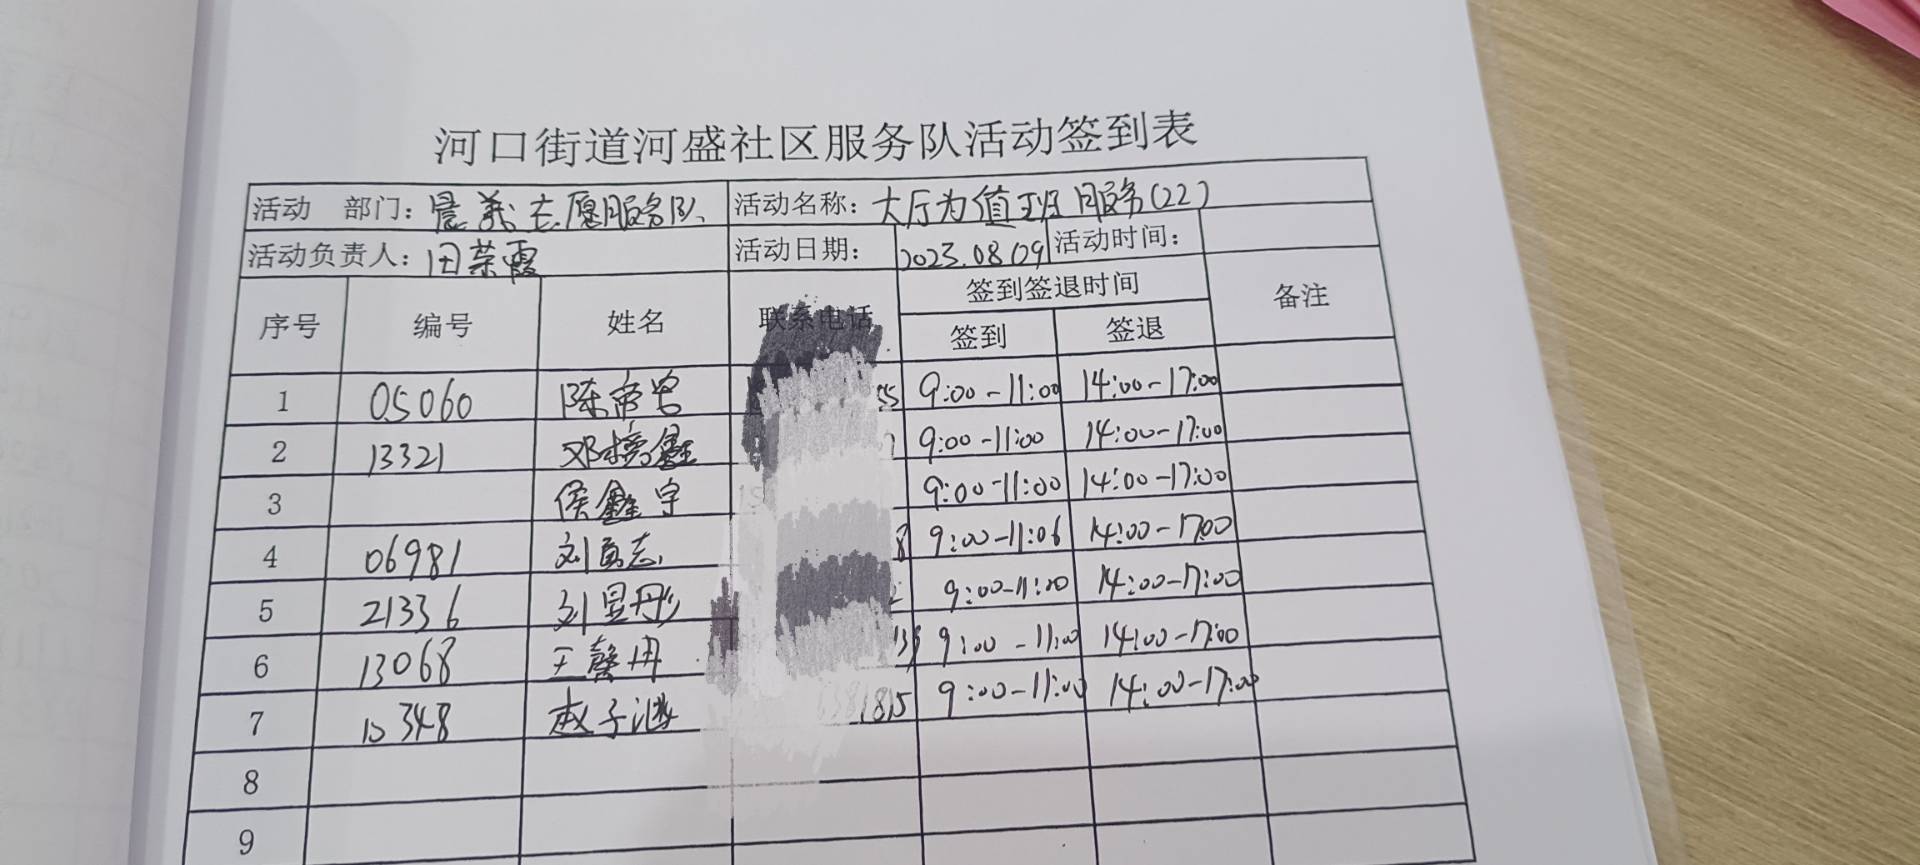 河口街道河盛社区服务队活动签到表
活动 部门：晨羲志愿服务队 活动名称：大厅为值班服务(22)
活动负责人：田荣霞 活动日期： 2023.08.09 活动时间：
序号 编号 姓名 联系电话 签到签退时间 备注
签到 签退
1 05060 陈帝 55 9:00-11:00 14:00-17:00
2 13321 邓榜鑫 9:00-11:00 14:00-17:00
3 侯鑫宇 9:00-11:00 14:00-17:00
4 06981 刘志 8 9:00-11:06 14:00-17:00
5 21336 刘昱彤 2 9:00-11:00 14:00-17:00
6 13068 王馨冉 9:00-11:00 14:00-17:00
7 10348 赵子 1815 9:00-11:00 14:00-17:00
8
9